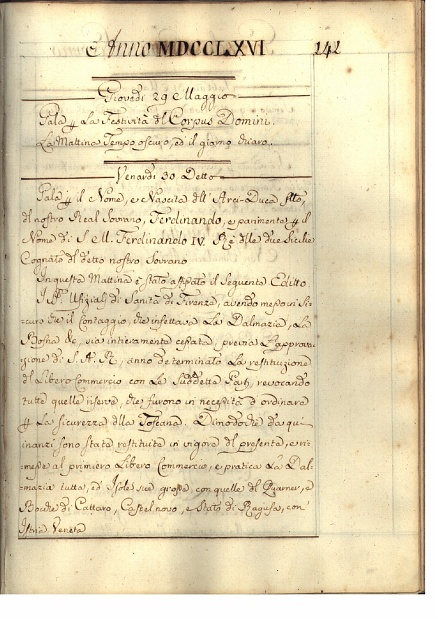 Anno MDCCLXVI 141
Giovedì 29 Maggio
Gala p. La Festività del Corpus Domini.
La Mattina Tempo oscuro, ed il giorno chiaro.
Venerdì 30 Detto
Gala p. il Nome, e Nascita dell' Arci-Duca
del nostro Real Sovrano, Ferdinando, e parimente p. il
Nome di S. M. Ferdinando IV. Rè delle due Sicilie
Cognato del detto nostro Sovrano
In questa Mattina è stato affissato il seguente Editto.
Ufiziali di Sanità di Firenze, avendo
che il Contaggio, che infettava La Dalmazia, La
Bosna &c, sia intieramente cessata, previa L'approva-
zione di S. A. R, anno determinato La restituzione
del Libero Commercio con Le Suddette Parti, revocando
tutte quelle riserve, che furono in necessità d'ordinare
p. La sicurezza della Toscana. Dimodochè da qui
inanzi sono state restituite in vigore del presente, e ri-
messe al primiero Libero Commercio, e pratica La Dal-
mazia tutta, ed Isole sue grosse, con quelle del Quarner, e
Bocche di Cattaro, Castel novo, e Stato di Ragusa, con
Istria Veneta